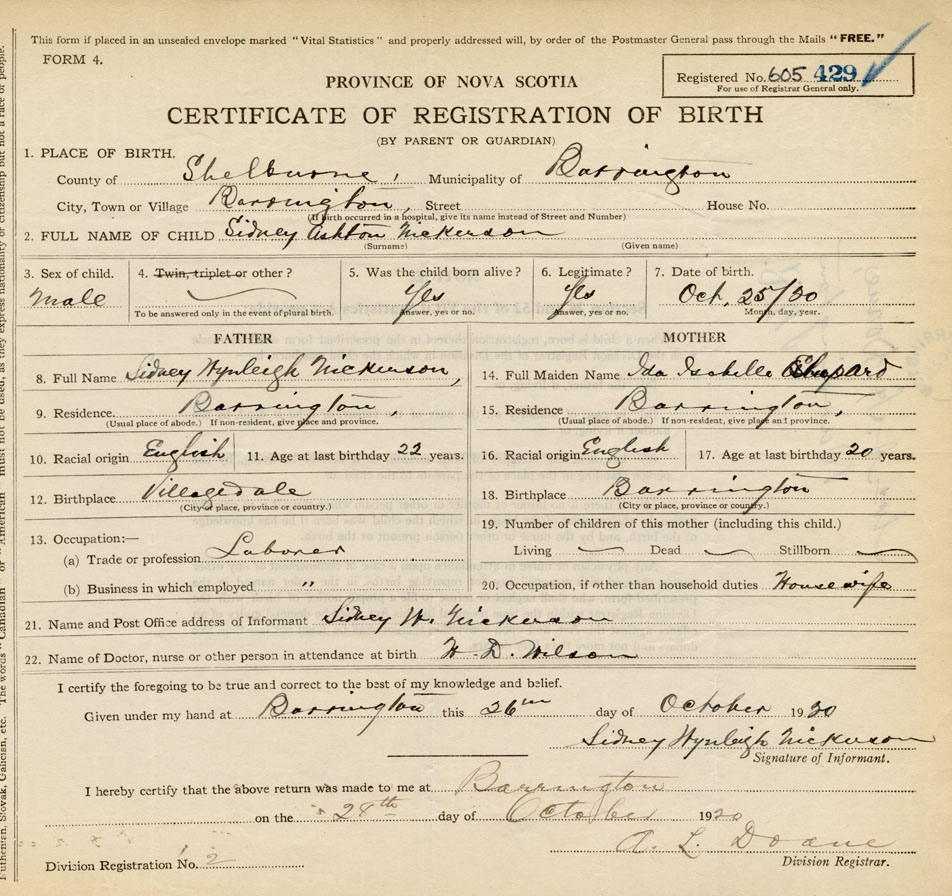 This form if placed in an unsealed envelope marked "Vital Statistics" and properly addressed will, by order of the Postmaster General pass through the Mails "FREE."
FORM 4.
Registered No. 605 429
For use of Registrar General only.
PROVINCE OF NOVA SCOTIA
CERTIFICATE OF REGISTRATION OF BIRTH
(BY PARENT OR GUARDIAN)
1. PLACE OF BIRTH.
County of Shelburne, Municipality of Barrington
City, Town or Village Barrington, Street House No.
(If birth occurred in a hospital, give its name instead of Street and Number)
2. FULL NAME OF CHILD Sidney Ashton Nickerson
(Surname) (Given name)
3. Sex of child. 4. Twin, triplet or other? 5. Was the child born alive? 6. Legitimate? 7. Date of birth.
Male Yes Yes Oct. 25/20
To be answered only in the event of plural birth. Answer, yes or no. Answer, yes or no. Month, day, year.
FATHER MOTHER
8. Full Name Sidney Wynleigh Nickerson, 14. Full Maiden Name Ida Isabelle Shepard
9. Residence. Barrington, 15. Residence Barrington,
(Usual place of abode.) If non-resident, give place and province. (Usual place of abode.) If non-resident, give place and province.
10. Racial origin English 11. Age at last birthday 22 years. 16. Racial origin English 17. Age at last birthday 20 years.
12. Birthplace Villagedale 18. Birthplace Barrington
(City or place, province or country.) (City or place, province or country.)
13. Occupation:— 19. Number of children of this mother (including this child.)
(a) Trade or profession Laborer Living Dead Stillborn
(b) Business in which employed " 20. Occupation, if other than household duties Housewife
21. Name and Post Office address of Informant Sidney W. Nickerson
22. Name of Doctor, nurse or other person in attendance at birth H. D. Wilson
I certify the foregoing to be true and correct to the best of my knowledge and belief.
Given under my hand at Barrington this 26th day of October 1920
Sidney Wynleigh Nickerson
Signature of Informant.
I hereby certify that the above return was made to me at Barrington
on the 28th day of October 1920
A. L. Doane
Division Registration No. 2 Division Registrar.